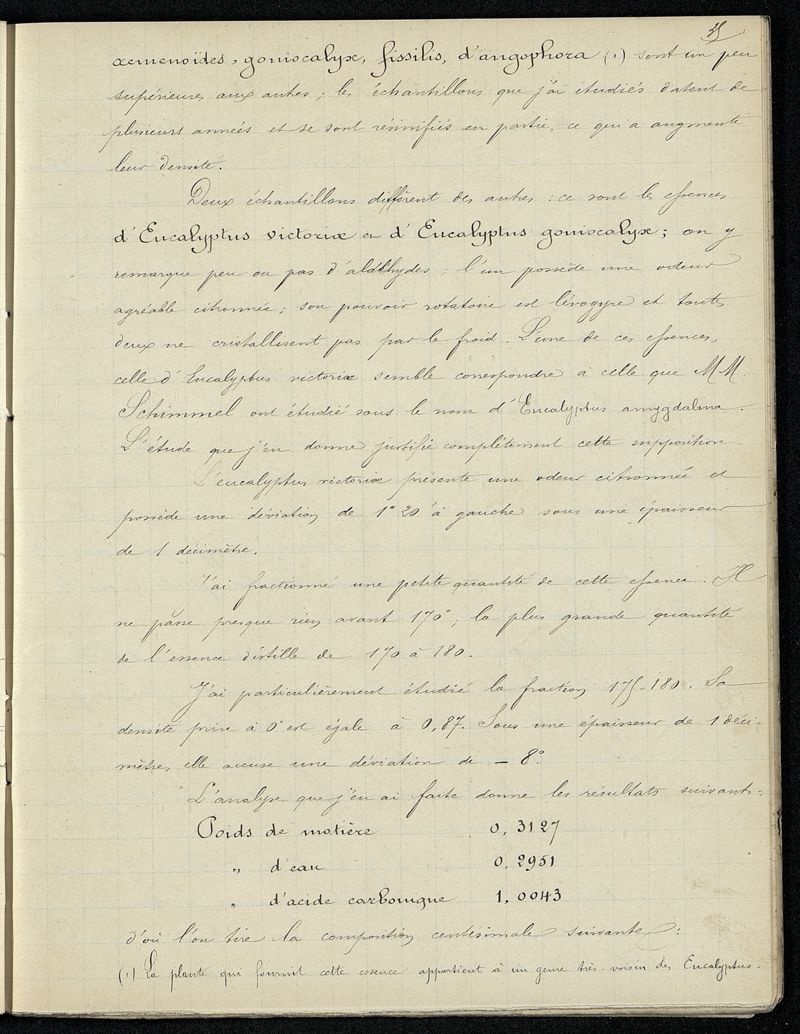 35
acmenoïdes, goniocalyx, fissilis, d'angophora (1) sont un peu
supérieures aux autres; les échantillons que j'ai étudiés datent de
plusieurs années et se sont résinifiés en partie, ce qui a augmenté
leur densité.
Deux échantillons diffèrent des autres: ce sont les essences
d'Eucalyptus victoriæ et d'Eucalyptus goniocalyx; on y
remarque peu ou pas d'aldéhydes; l'un possède une odeur
agréable citronnée; son pouvoir rotatoire est lévogyre et toutes
deux ne cristallisent pas par le froid. L'une de ces essences,
celle d'Eucalyptus victoriæ semble correspondre à celle que MM.
Schimmel ont étudié sous le nom d'Eucalyptus amygdalina.
L'étude que j'en donne justifie complètement cette supposition.
L'eucalyptus victoriæ présente une odeur citronnée et
possède une déviation de 1° 20' à gauche sous une épaisseur
de 1 décimètre.
J'ai fractionné une petite quantité de cette essence. Il
ne passe presque rien avant 170°, la plus grande quantité
de l'essence distille de 170 à 180.
J'ai particulièrement étudié la fraction 175-180. Sa
densité prise à 0° est égale à 0,87. Sous une épaisseur de 1 déci-
mètre, elle accuse une déviation de - 8°.
L'analyse que j'en ai faite donne les résultats suivants:
Poids de matière 0,3127
" d'eau 0,2951
" d'acide carbonique 1,0043
d'où l'on tire la composition centésimale suivante:
(1) La plante qui fournit cette essence appartient à un genre très voisin des Eucalyptus.